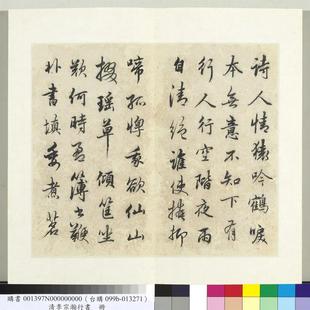 詩人情猿吟鶴唳
本無意不知下有
行人行空階夜雨
自清絕誰使掩抑
啼孤惸我欲仙山
掇瑤草傾筐坐
歎何時盈簿書鞭
朴晝填委煮茗
購書 001397N000000000 (台購 099b-013271)
清李宗瀚行書 冊